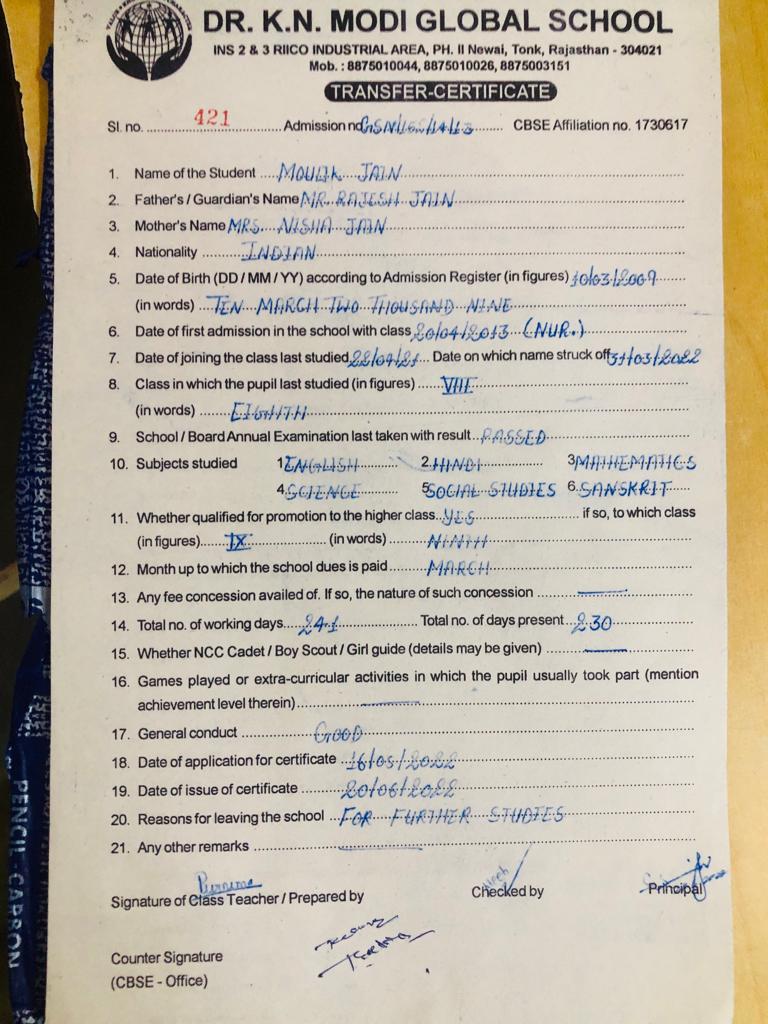 DR. K.N. MODI GLOBAL SCHOOL
INS 2 & 3 RIICO INDUSTRIAL AREA, PH. II Newai, Tonk, Rajasthan - 304021
Mob. : 8875010044, 8875010026, 8875003151
TRANSFER-CERTIFICATE
Sl. no. 421 Admission no. CBSE Affiliation no. 1730617
1. Name of the Student MOULIK JAIN
2. Father's / Guardian's Name MR. RAJESH JAIN
3. Mother's Name MRS. NISHA JAIN
4. Nationality INDIAN
5. Date of Birth (DD / MM / YY) according to Admission Register (in figures) 10/03/2009
(in words) TEN MARCH TWO THOUSAND NINE
6. Date of first admission in the school with class 20/04/2013 (NUR.)
7. Date of joining the class last studied 22/04/21 Date on which name struck off 31/03/2022
8. Class in which the pupil last studied (in figures) VIII
(in words) EIGHTH
9. School / Board Annual Examination last taken with result PASSED
10. Subjects studied 1 ENGLISH 2. HINDI 3 MATHEMATICS
4 SCIENCE 5 SOCIAL STUDIES 6. SANSKRIT
11. Whether qualified for promotion to the higher class YES if so, to which class
(in figures) IX (in words) NINTH
12. Month up to which the school dues is paid MARCH
13. Any fee concession availed of. If so, the nature of such concession
14. Total no. of working days 241 Total no. of days present 230
15. Whether NCC Cadet / Boy Scout / Girl guide (details may be given)
16. Games played or extra-curricular activities in which the pupil usually took part (mention
achievement level therein)
17. General conduct GOOD
18. Date of application for certificate 16/05/2022
19. Date of issue of certificate 20/06/2022
20. Reasons for leaving the school FOR FURTHER STUDIES
21. Any other remarks
Signature of Class Teacher / Prepared by Checked by Principal
Counter Signature
(CBSE - Office)
PENCIL CARBON